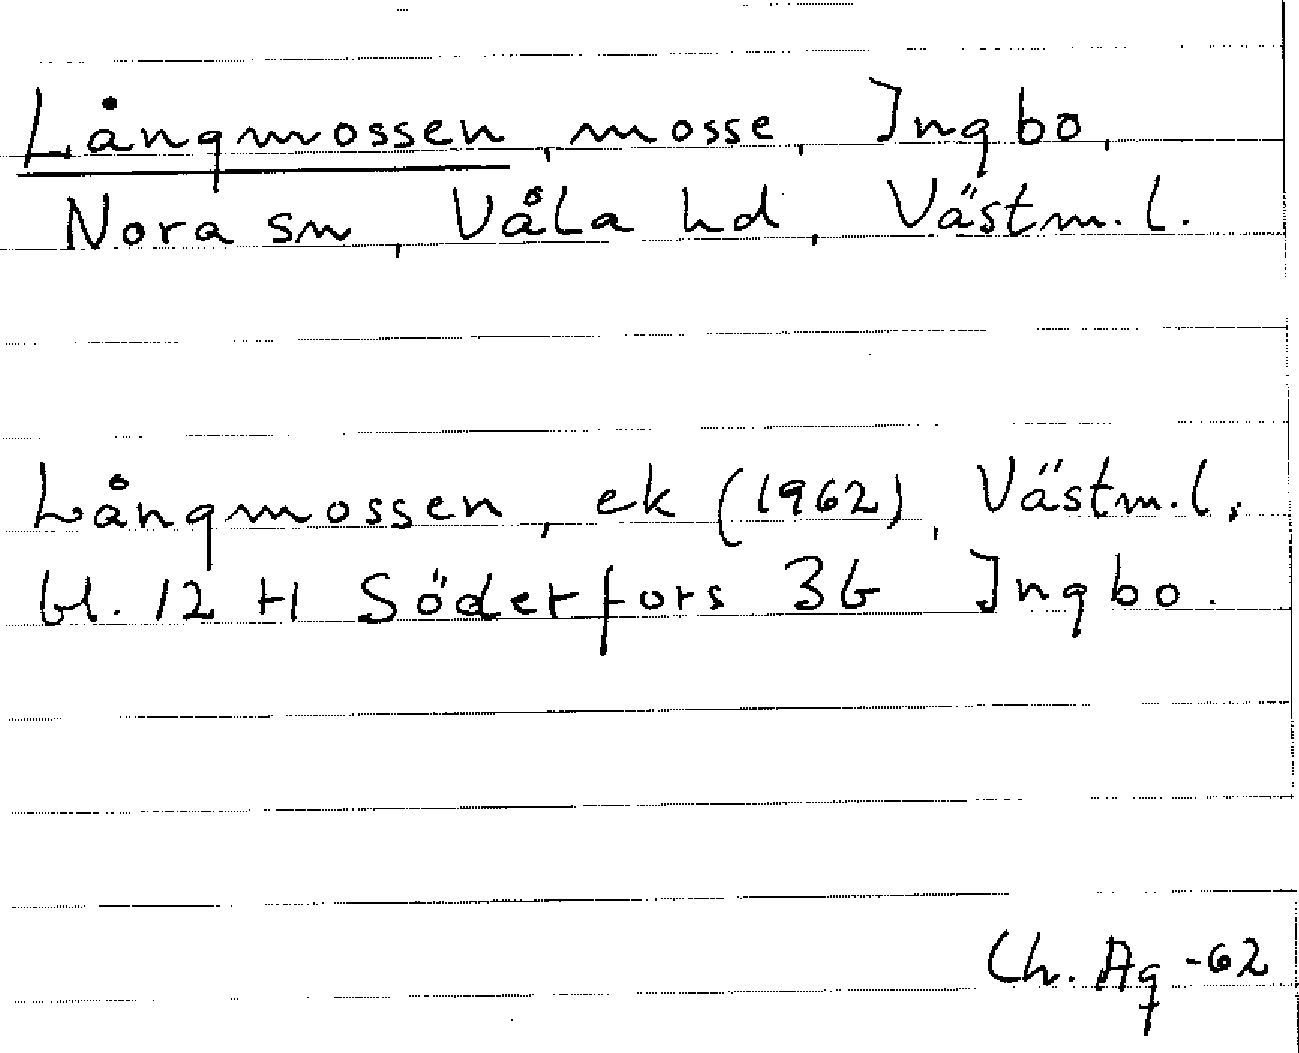 Långmossen, mosse, Ingbo,
Nora sn, Våla hd, Västm. l.
Långmossen, ek (1962), Västm. l.
bl. 12 H Söderfors 3b Ingbo.
Ch. Ag -62